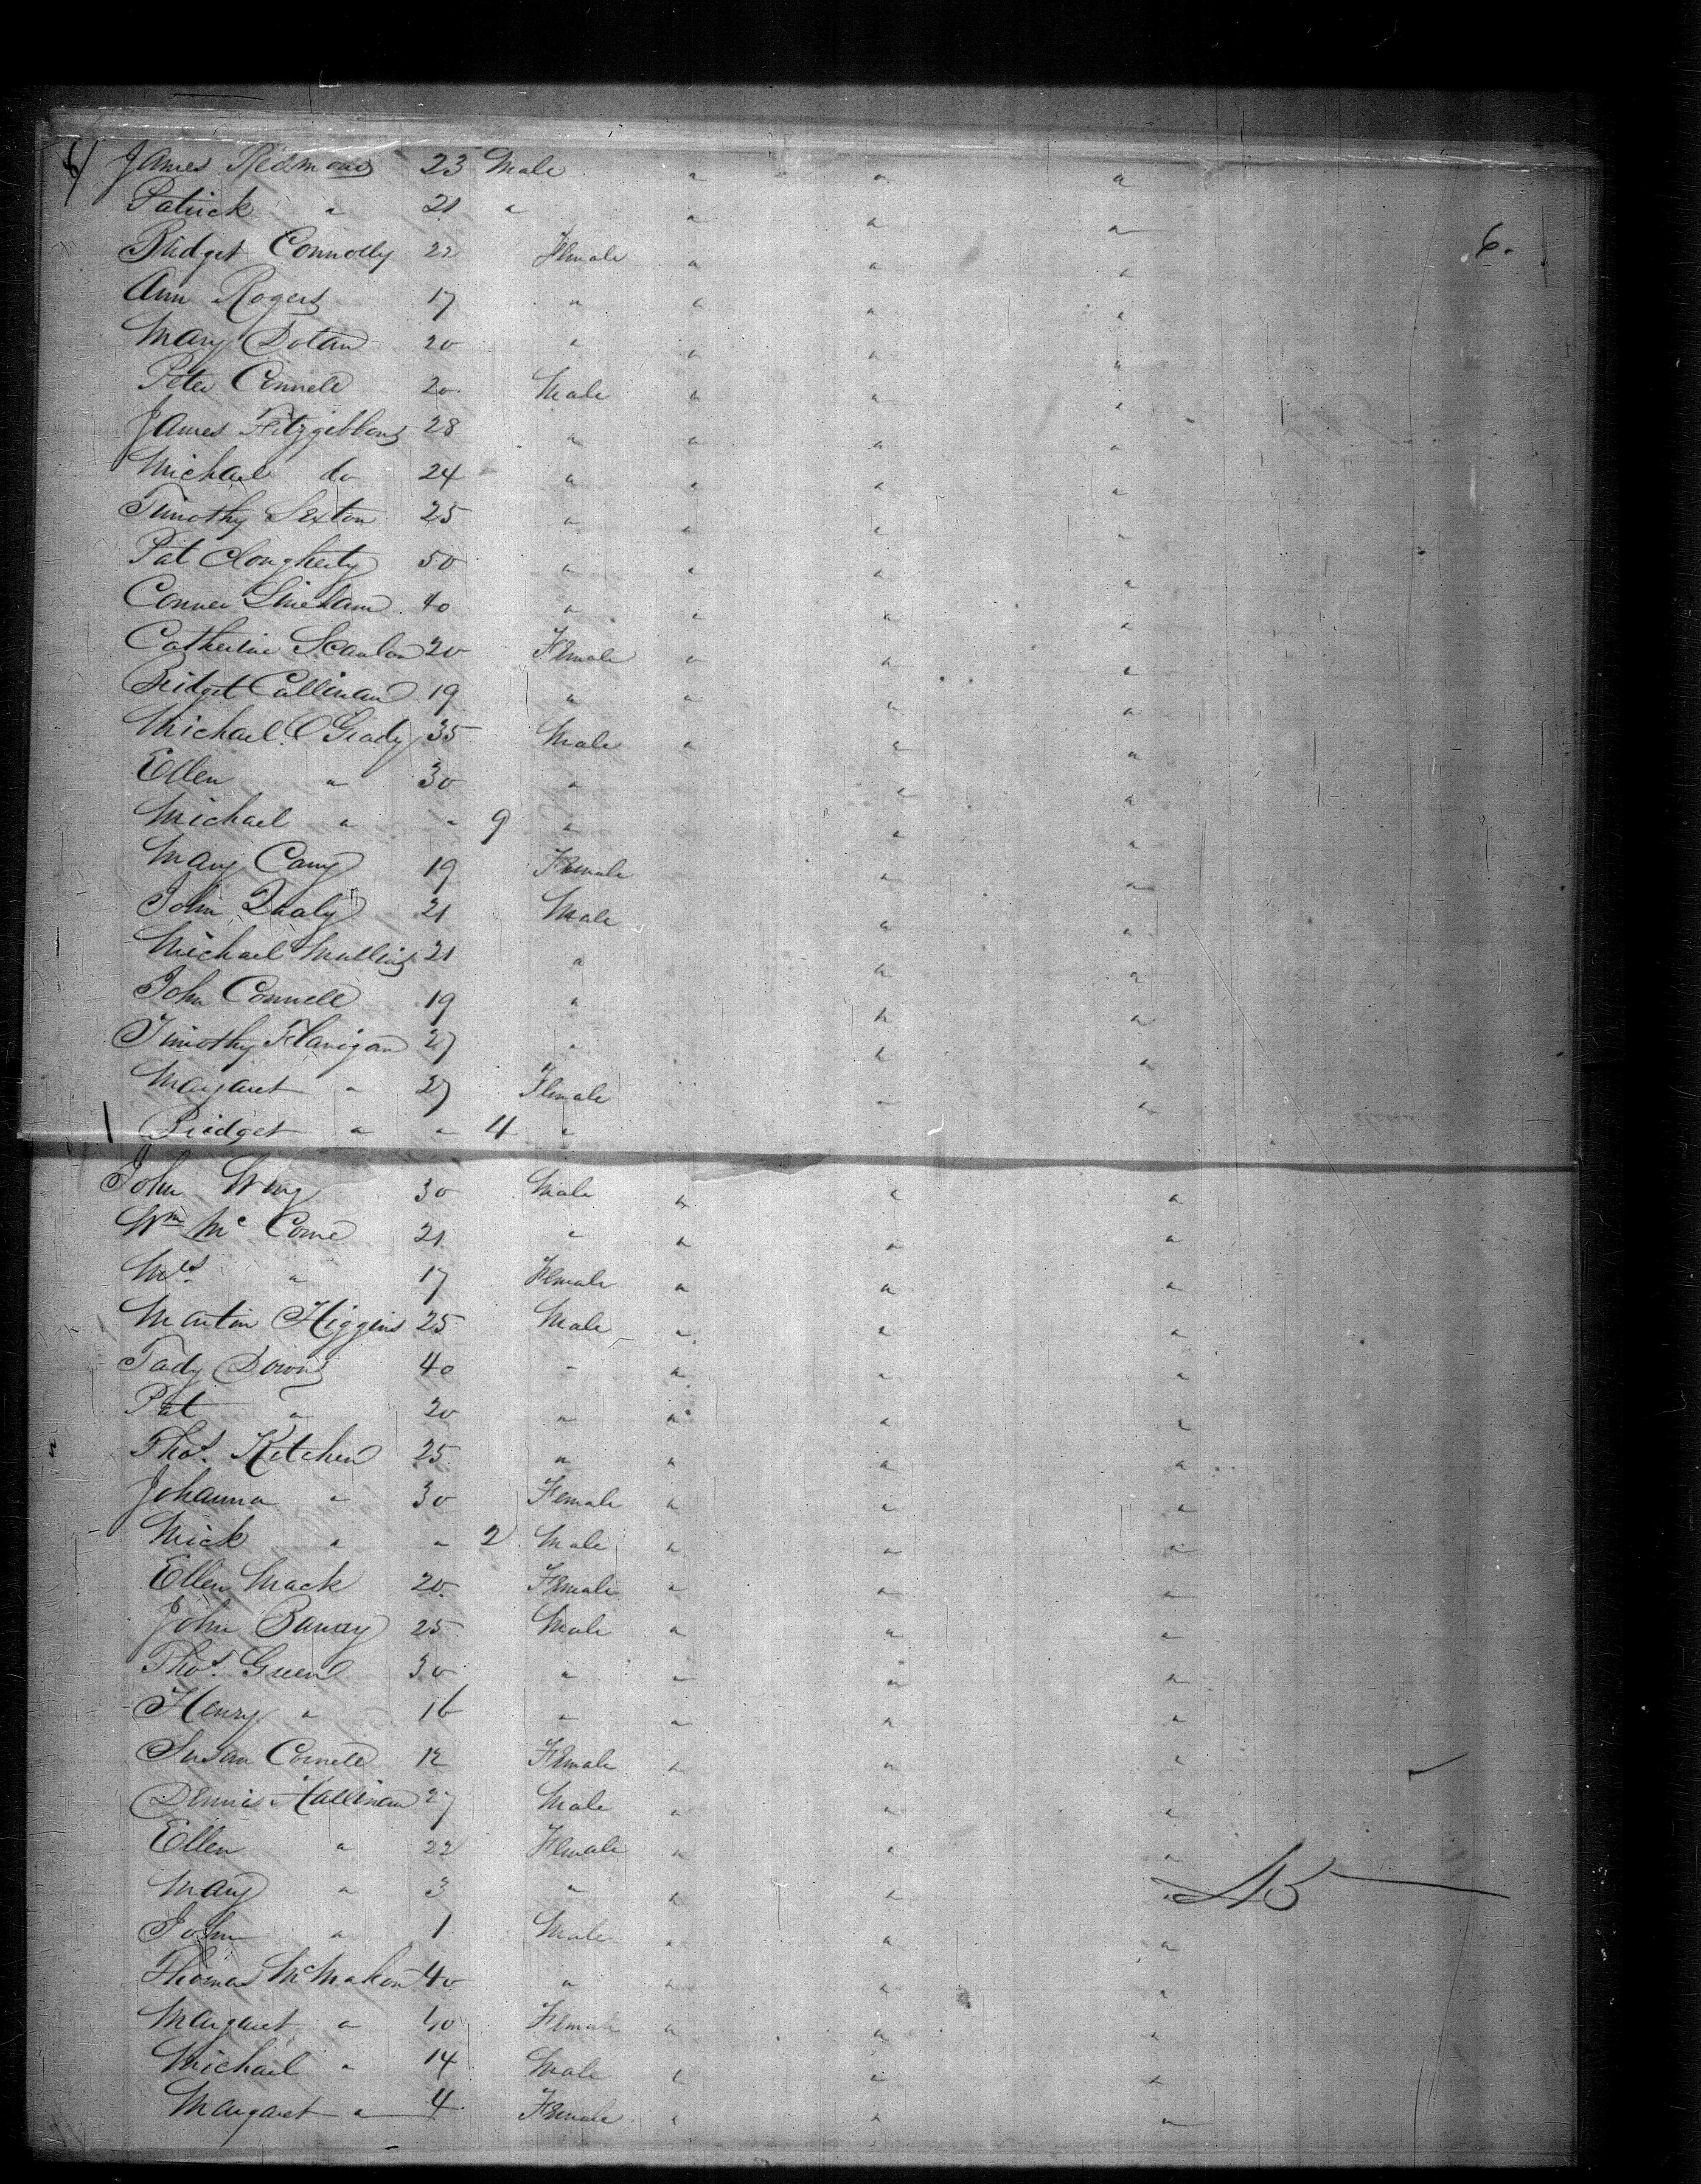 James Redmond 23 Male " " "
Patrick " 21 " " " "
6.
Bridget Connolly 22 Female " " "
Ann Rogers 17 " " " "
Mary Dolan 20 " " " "
Peter Connell 20 Male " " "
James Fitzgibbons 28 " " " "
Michael do 24 " " " "
Timothy Sexton 25 " " " "
Pat Clougherty 50 " " " "
Conner 40 " " " "
Catherine Scanlon 20 Female " " "
Bridget Callinan 19 " " " "
Michael O Grady 35 Male " " "
Ellen " 30 " " "
Michael " " 9 " " "
Mary Camy 19 Female " "
John Qualy 21 Male " "
Michael Mullins 21 " " "
John Connell 19 " " "
Timothy Flanigan 27 " " "
Margaret " 27 Female " "
1 Bridget " " 4 "
John Wing 30 Male " " "
Wm Mc Come 21 " " " "
Mrs " 17 Female " " "
Martin Higgins 25 Male " " "
Tady Downs 40 " " " "
Pat " 20 " " " "
Thos. Kitchen 25 " " " "
Johanna " 30 Female " " "
Mick " " 2 Male " " "
Ellen Mack 20 Female " " "
John 25 Male " " "
Thos. Green 30 " " " "
Henry " 16 " " " "
Susan Connell 12 Female " " "
Dennis Hallinan 27 Male " " "
Ellen " 22 Female " " "
Mary " 3 " " " "
45
John " 1 Male " " "
Thomas McMahon 40 " " " "
Margaret " 40 Female " " "
Michael " 14 Male " " "
Margaret " 4 Female " " "